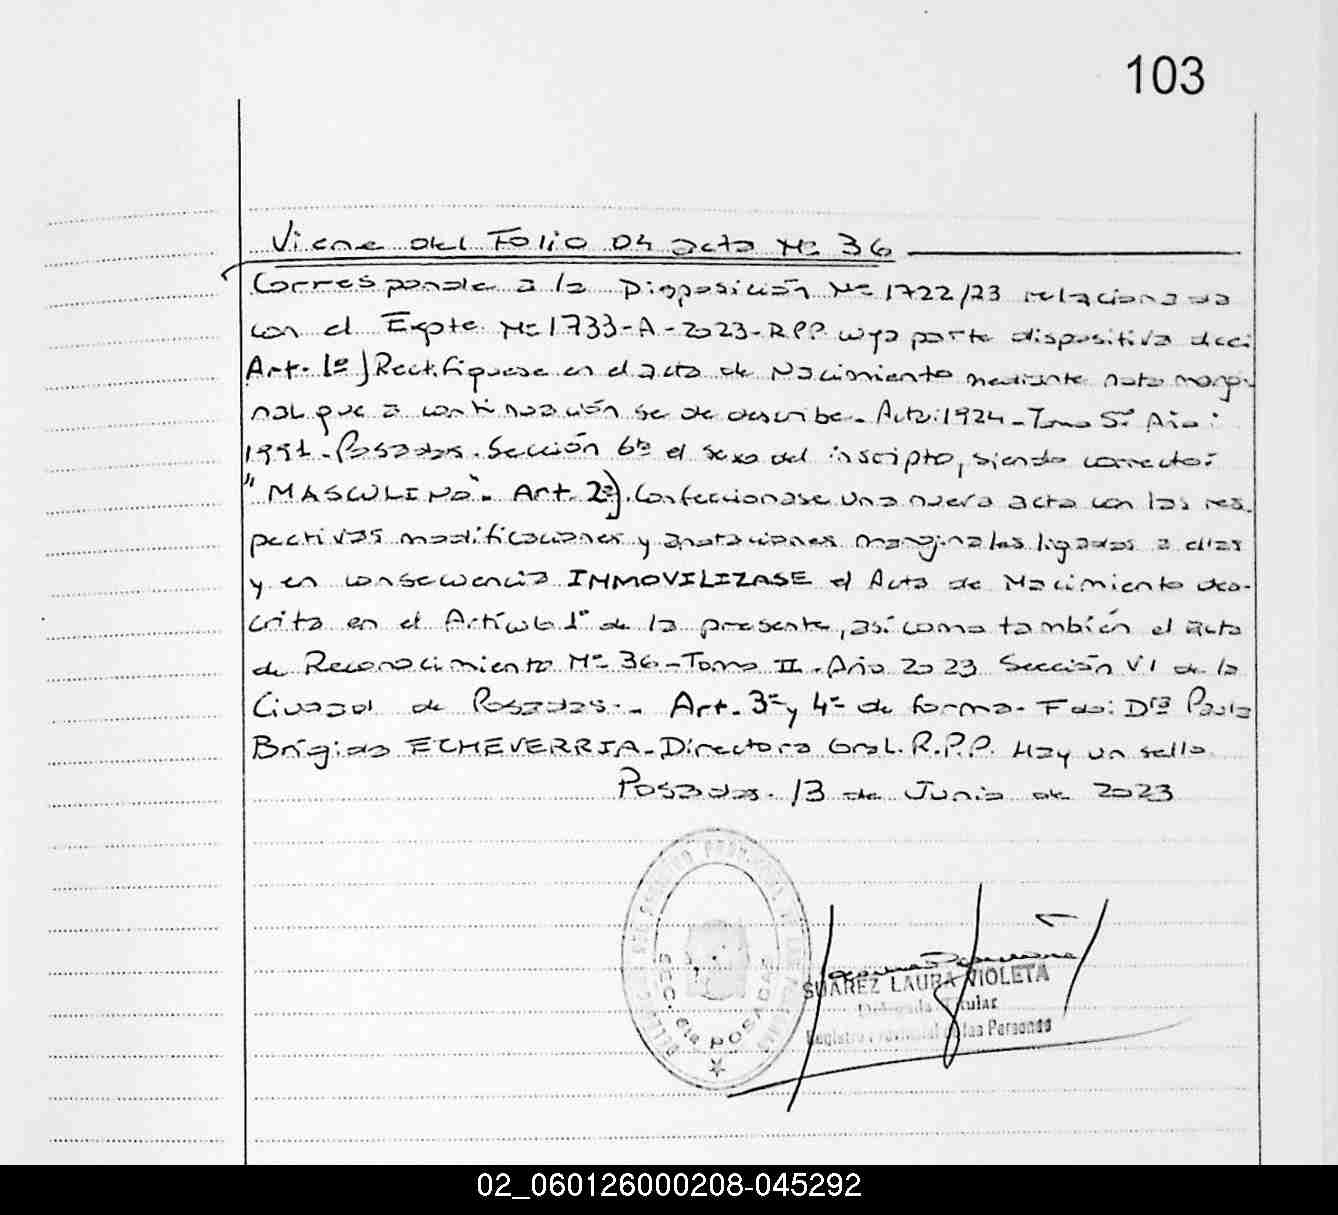 103
Viene del Folio 04 acta Nº 36
Corresponde a la Disposición Nº 1722/23 relacionada
con el Expte Nº 1733-A-2023-RPP cuya parte dispositiva dice:
Art. 1º) Rectifiquese en el acta de Nacimiento mediante nota margi-
nal que a continuación se de describe. Acta: 1924 - Tomo 5º Año:
1991 - Posadas. Sección 6ta el sexo del inscripto, siendo correcto:
"MASCULINO". Art. 2º). Confeccionase una nueva acta con las res-
pectivas modificaciones y anotaciones marginales ligadas a ellas
y en consecuencia INMOVILIZASE el Acta de Nacimiento des-
crita en el Artículo 1º de la presente, así como también el acta
de Reconocimiento Nº 36 - Tomo II - Año 2023 Sección VI de la
Ciudad de Posadas.- Art. 3º y 4º de forma. Fdo: Dra Paula
Brígida ECHEVERRIA - Directora Gral. R.P.P. Hay un sello
Posadas. 13 de Junio de 2023
SEC. 6ta POSADAS
SUAREZ LAURA VIOLETA
Delegada Titular
Registro Provincial de las Personas
02_060126000208-045292